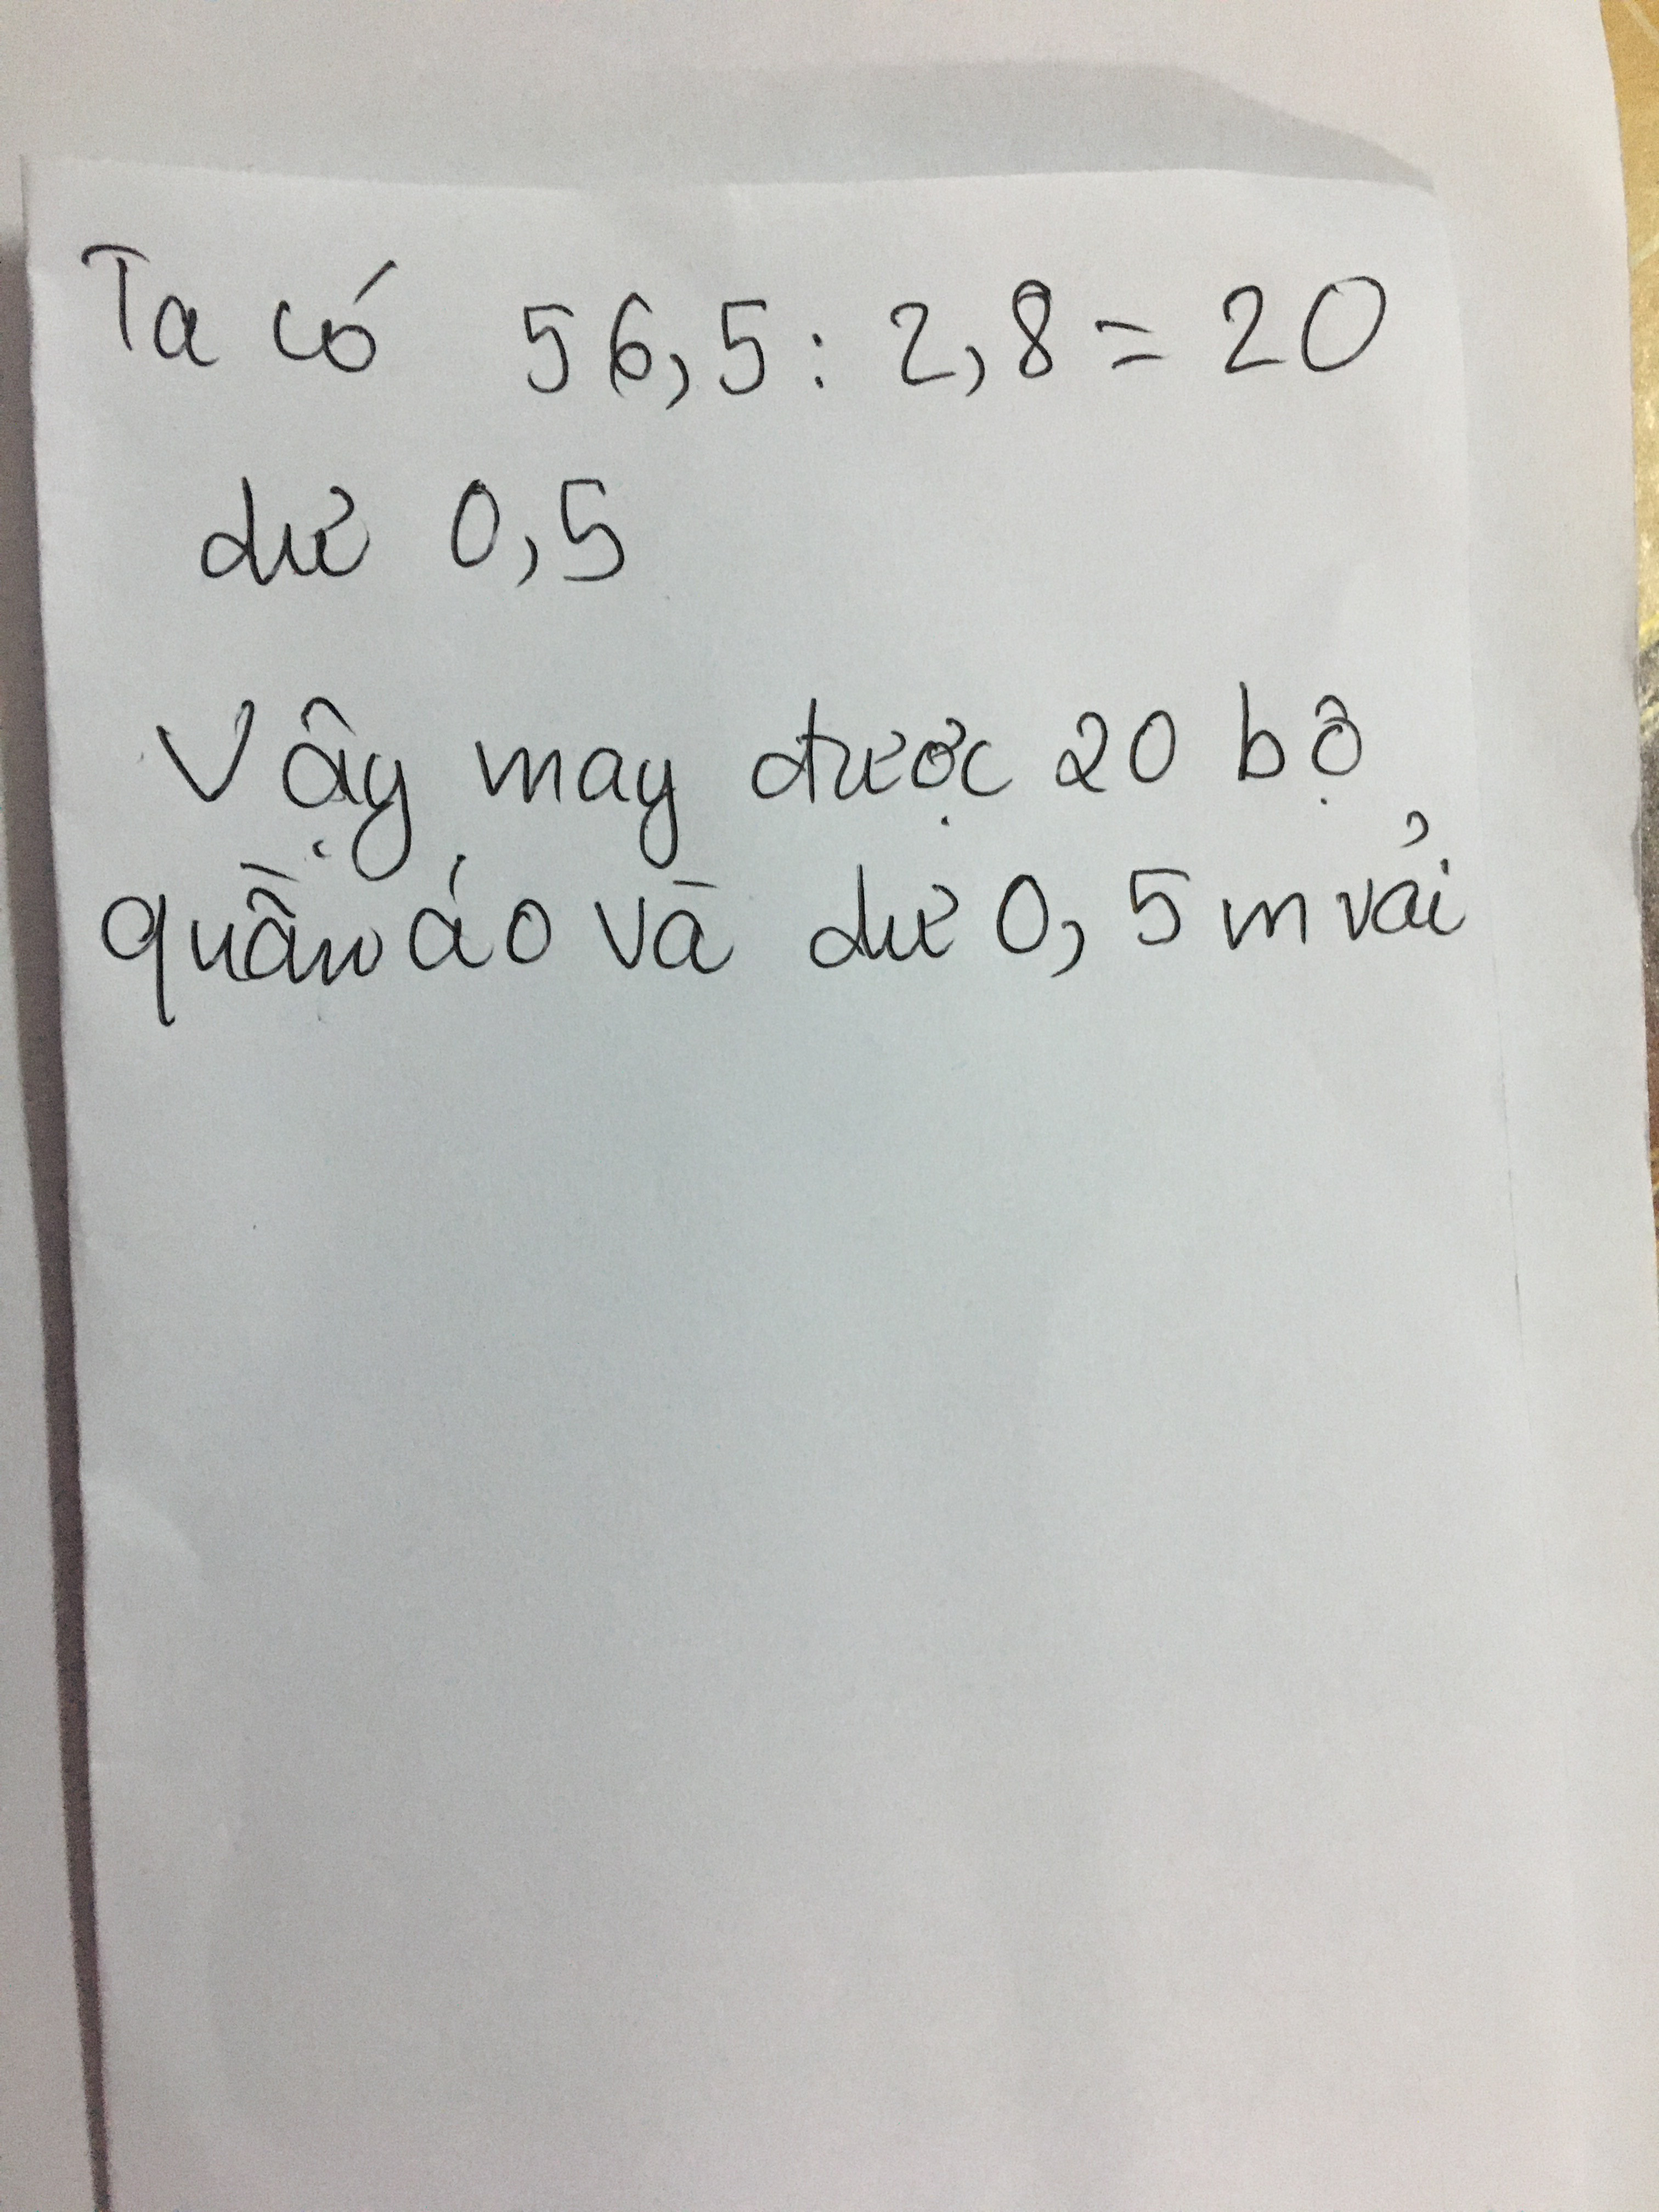 Ta có 56,5 : 2,8 = 20
dư 0,5
Vậy may được 20 bộ
quần áo và dư 0,5 m vải